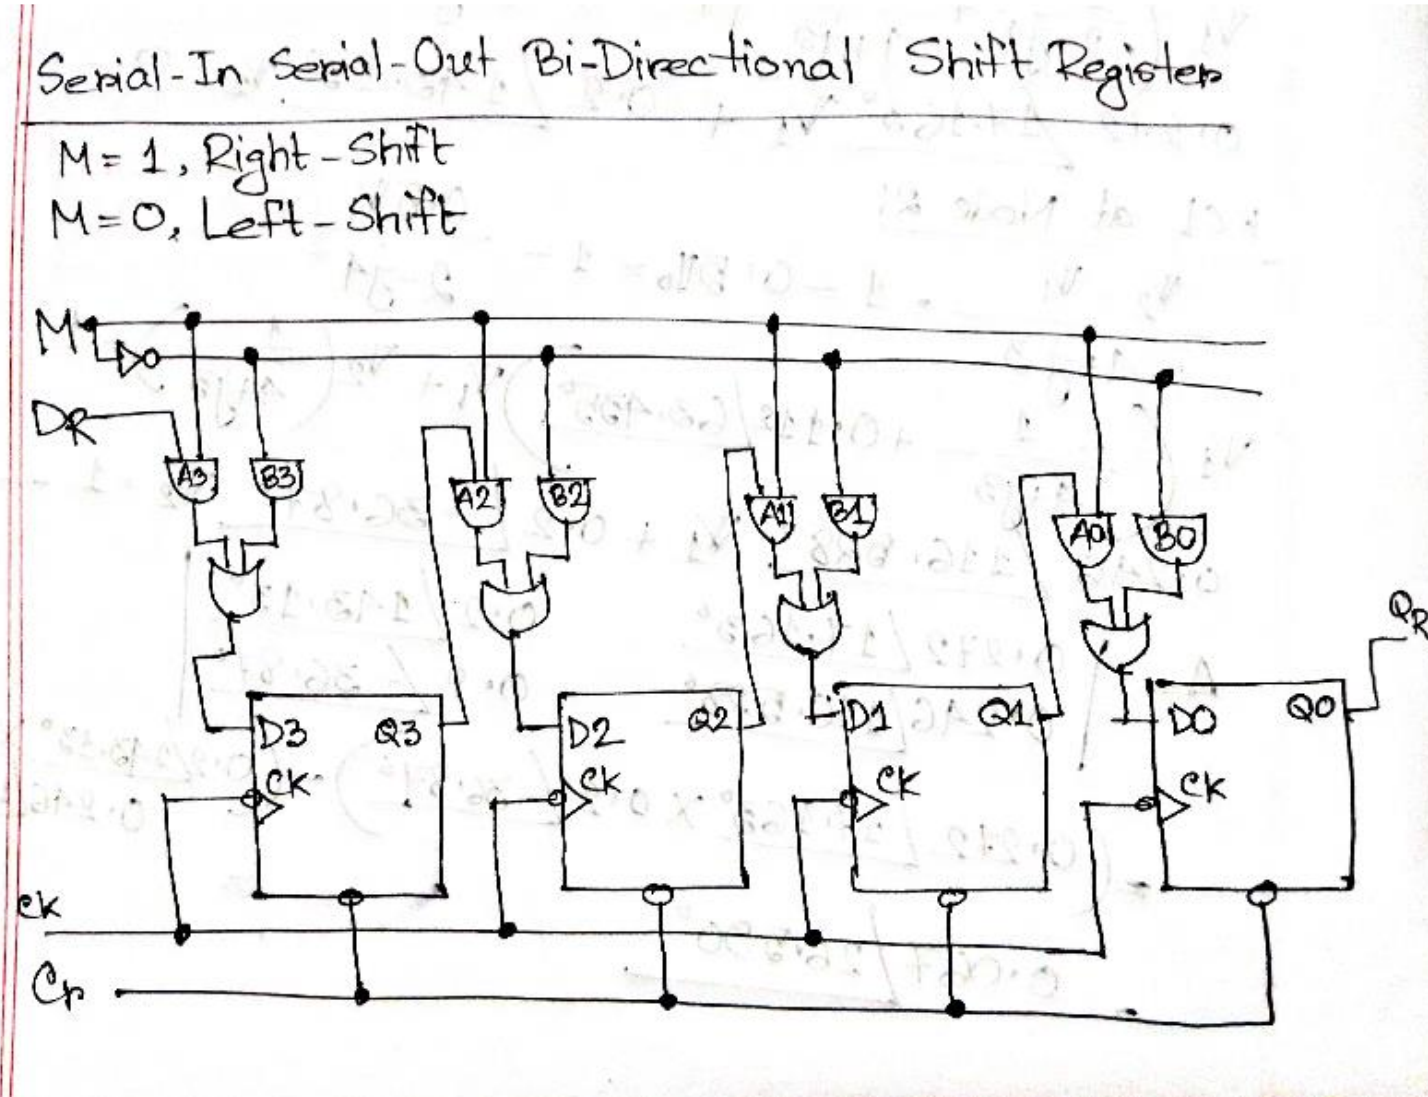 Serial-In Serial-Out Bi-Directional Shift Register
M = 1, Right-Shift
M = 0, Left-Shift
M
DR
A3 B3 A2 B2 A1 B1 A0 B0
QR
D3 Q3 D2 Q2 D1 Q1 D0 Q0
CK CK CK CK
CK
Cr